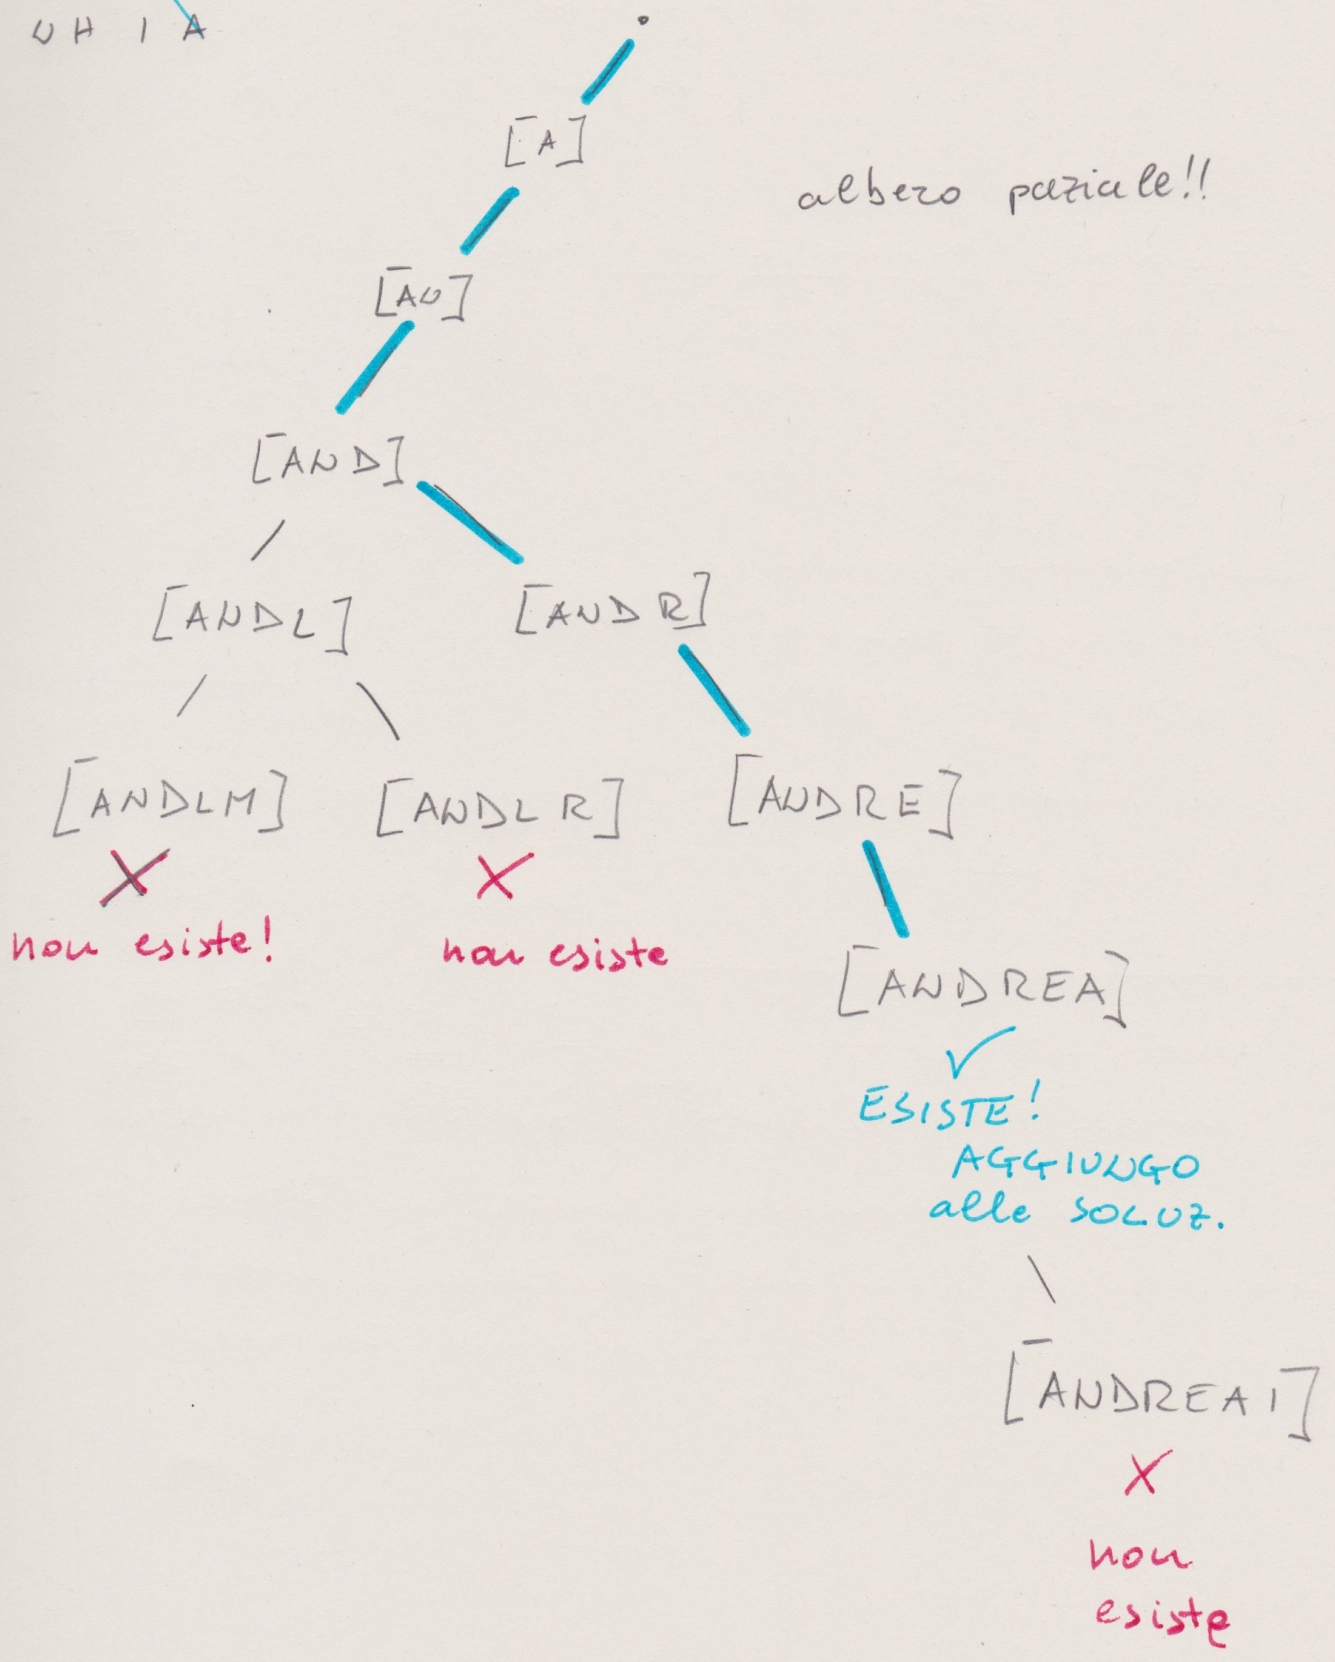 N H I A
[A]
albero paziale!!
[AN]
[AND]
[ANDL] [ANDR]
[ANDLM] [ANDLR] [ANDRE]
non esiste! non esiste
[ANDREA]
ESISTE!
AGGIUNGO
alle SOLUZ.
[ANDREAI]
non
esiste